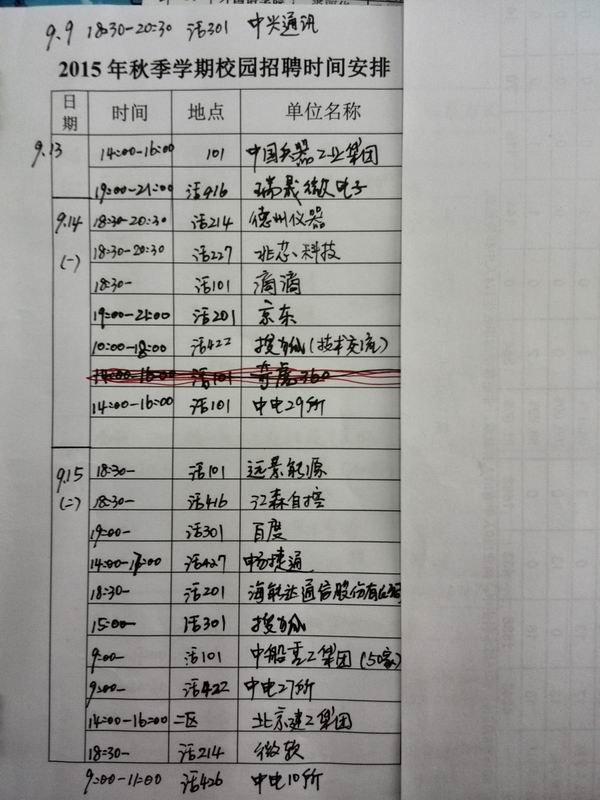 9.9 18:30-20:30 活301 中兴通讯
2015年秋季学期校园招聘时间安排
日期 时间 地点 单位名称
9.13 14:00-16:00 101 中国兵器工业集团
19:00-21:00 活416 瑞晟微电子
9.14 18:30-20:30 活214 德州仪器
(一) 18:30-20:30 活227 兆芯科技
18:30- 活101 滴滴
19:00-21:00 活201 京东
10:00-18:00 活422 搜狐(技术交流)
14:00-16:00 活101 奇虎360
14:00-16:00 活101 中电29所
9.15 18:30- 活101 远景能源
(二) 18:30- 活416 江森自控
19:00- 活301 百度
14:00-17:00 活427 畅捷通
18:30- 活201 海能达通信股份有
15:00- 活301
9:00- 活101 中船重工集团(50家)
9:00- 活422 中电27所
14:00-16:00 二区 北京建工集团
18:30- 活214 微软
9:00-11:00 活426 中电10所